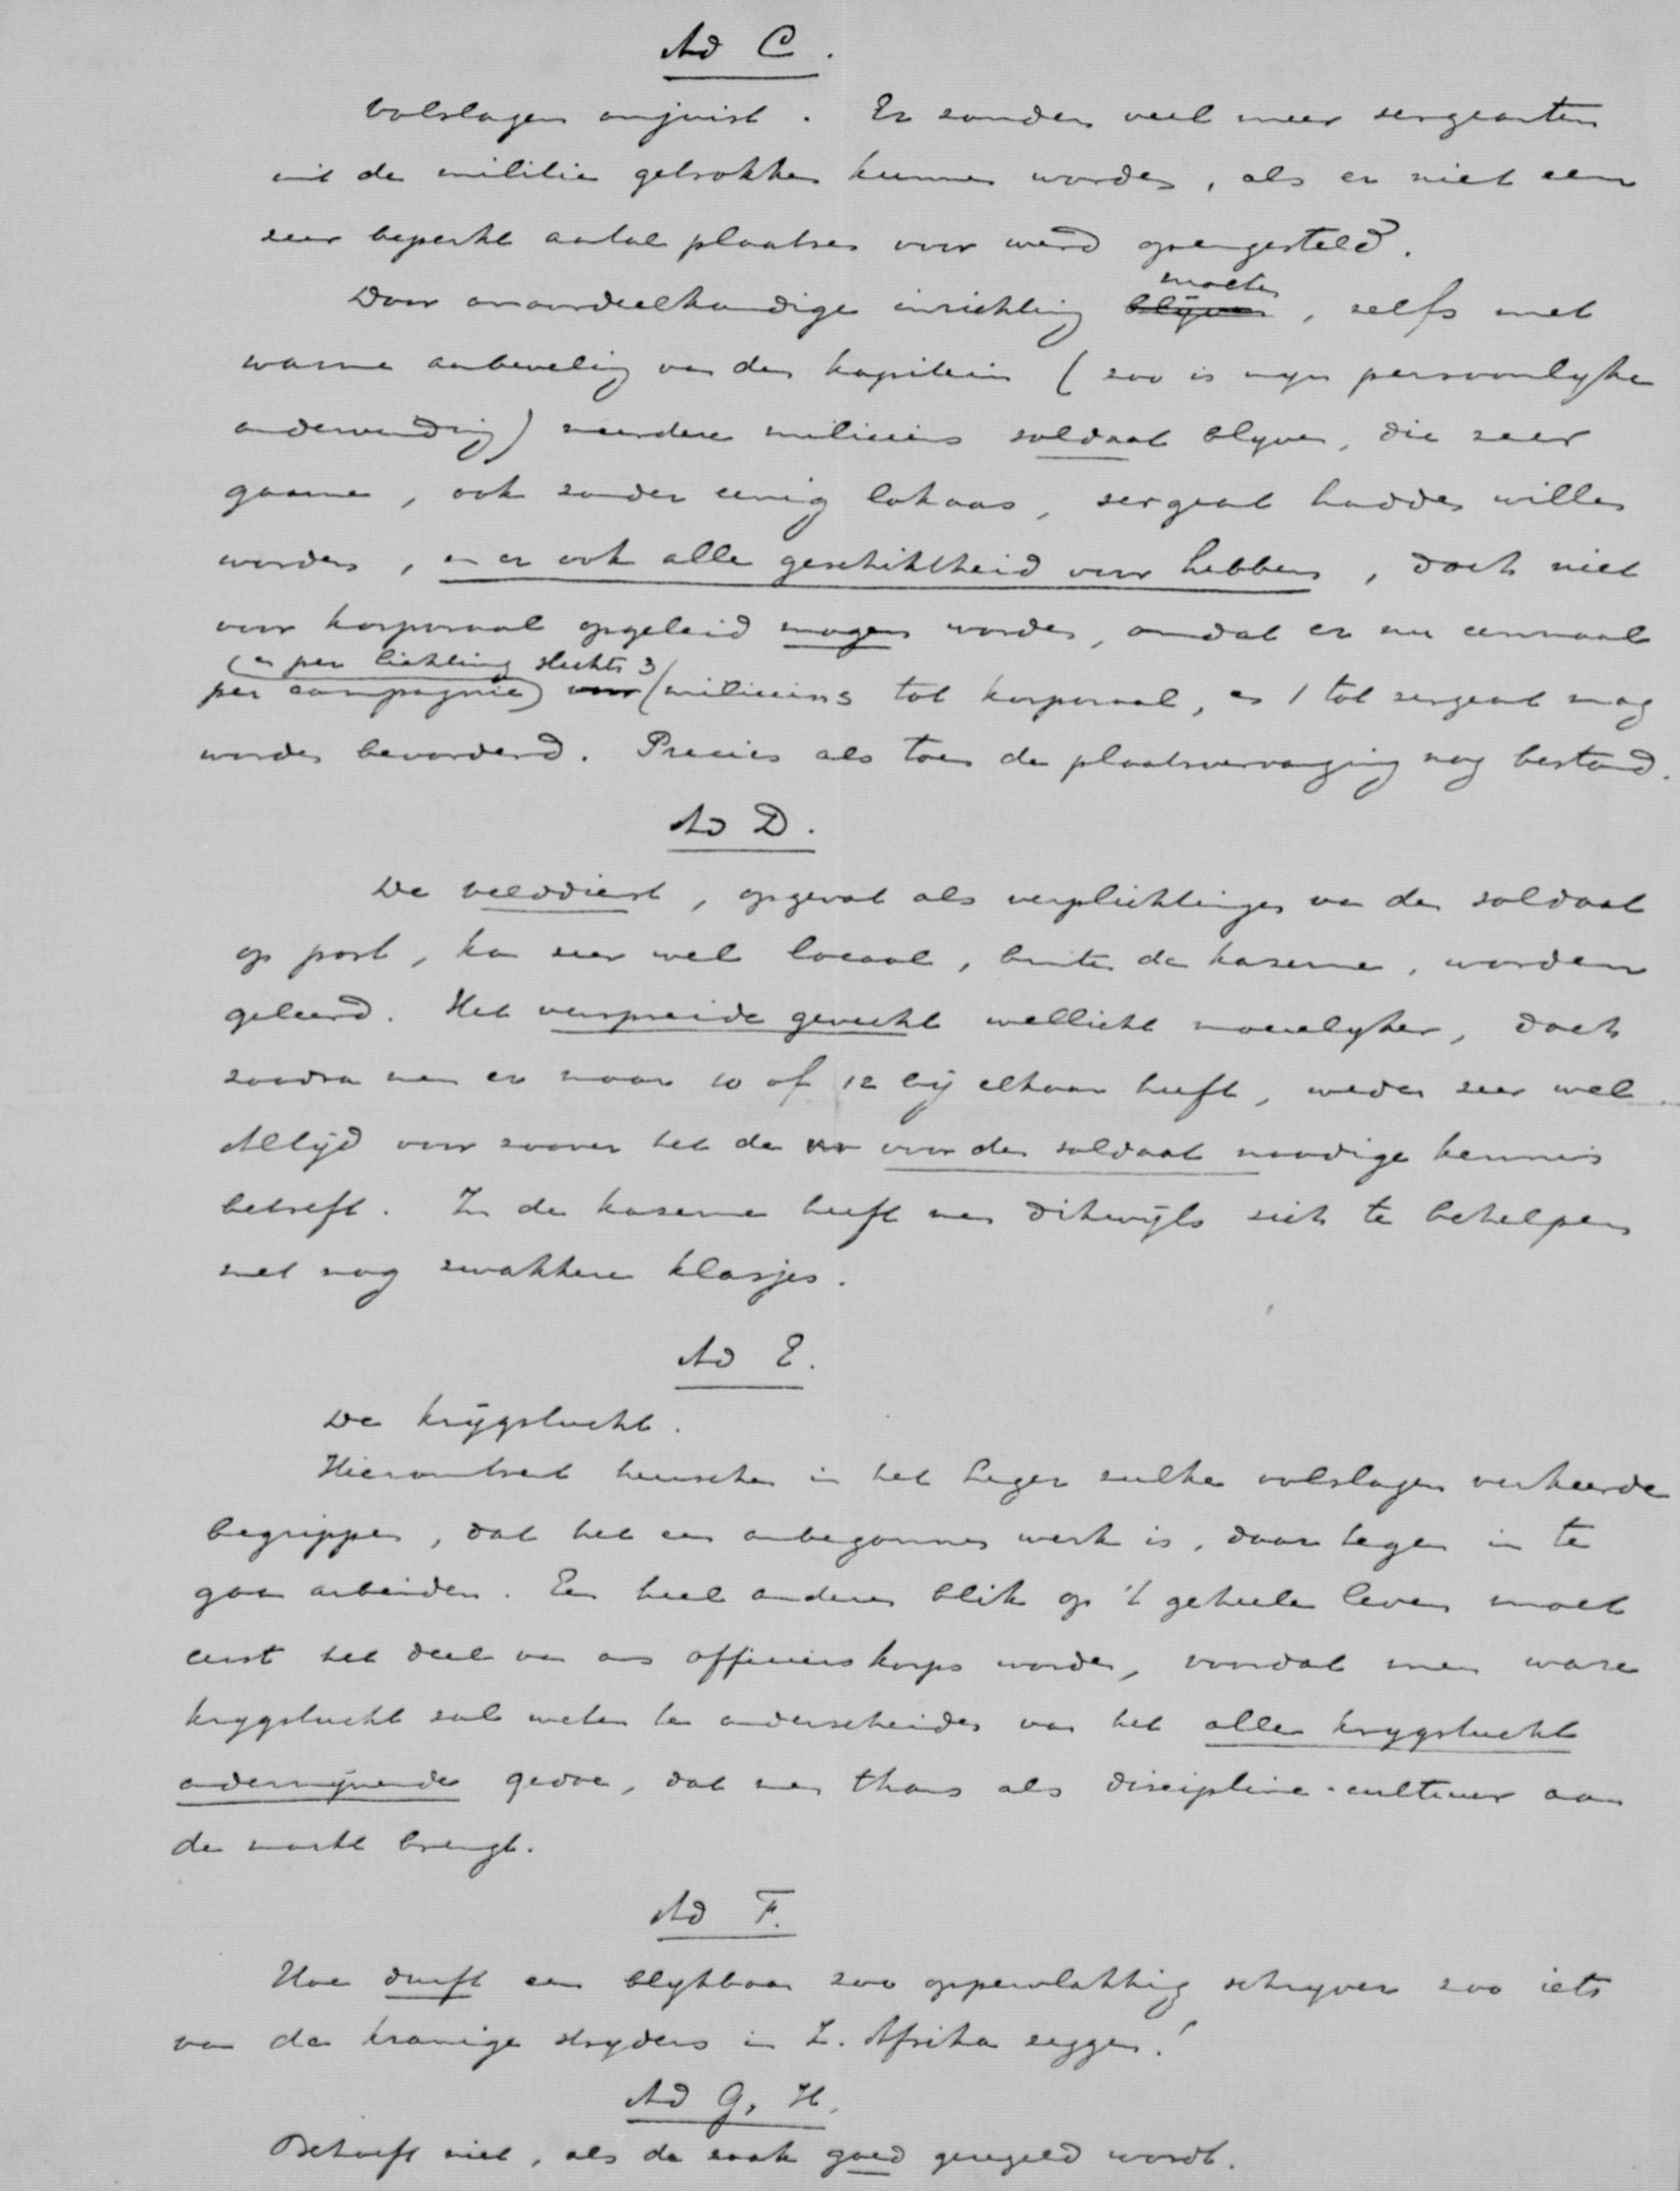 Ad C.
Volslagen onjuist. Er zouden veel meer sergeanten
uit de militie getrokken kunnen worden, als er niet een
zeer beperkt aantal plaatsen voor werd opengesteld.
moeten
Door onoordeelkundige inrichting blijven, zelfs met
warme aanbeveling van den kapitein (zoo is mijn persoonlijke
ondervinding) meerdere miliciens soldaat blijven, die zeer
gaarne, ook zonder eenig lokaas, sergeant hadden willen
worden, en er ook alle geschiktheid voor hebben, doch niet
voor korporaal opgeleid mogen worden, omdat er nu eenmaal
(en per lichting slechts 3
per compagnie) voor miliciens tot korporaal, en 1 tot sergeant mag
worden bevorderd. Precies als toen de plaatsvervanging nog bestond.
Ad D.
De velddienst, opgevat als verplichtingen van den soldaat
op post, kan zeer wel locaal, buiten de kazerne, worden
geleerd. Het verspreide gevecht wellicht moeielijker, doch
zoodra men er maar 10 of 12 bij elkaar heeft, weder zeer wel.
Altijd voor zoover het de voor den soldaat noodige kennis
betreft. In de kazerne heeft men dikwijls zich te behelpen
met nog zwakkere klasjes.
Ad E.
De krijgstucht.
Hieromtrent heerschen in het leger zulke volslagen verkeerde
begrippen, dat het een onbegonnen werk is, daar tegen in te
gaan arbeiden. Een heel andere blik op 't geheele leven moet
eerst het deel van ons officierskorps worden, voordat men ware
krijgstucht zal weten te onderscheiden van het alle krijgstucht
ondermijnende gedoe, dat men thans als discipline-cultuur aan
de markt brengt.
Ad F.
Hoe durft een blijkbaar zoo oppervlakkig schrijver zoo iets
van de kranige strijders in Z. Afrika zeggen!
Ad G, H.
Behoeft niet, als de zaak goed geregeld wordt.